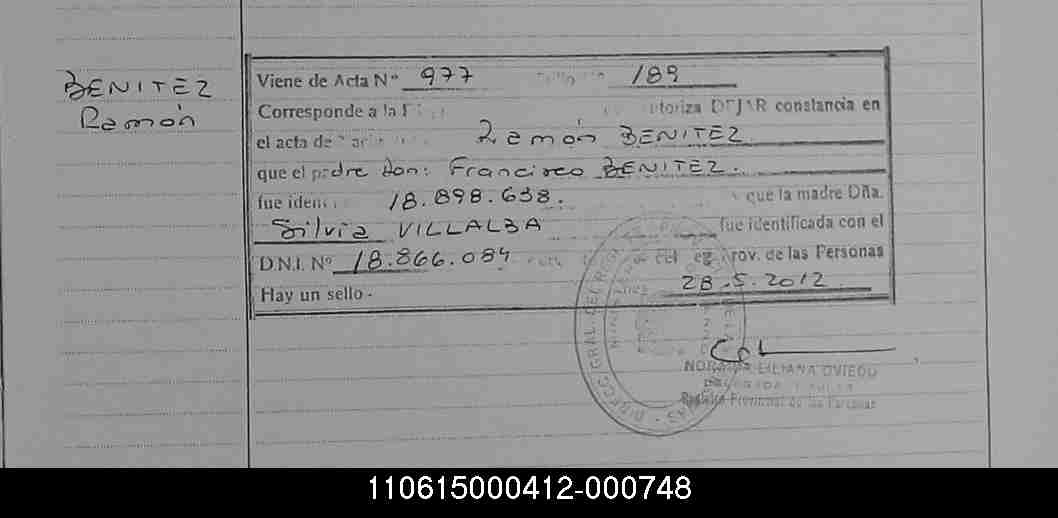 BENITEZ
Ramón
Viene de Acta Nº 977 189
Corresponde a la toriza DEJAR constancia en
el acta de Ramón BENITEZ.
que el padre Don: Francisco BENITEZ.
fue iden 18.898.638. que la madre Dña.
Silvia VILLALBA fue identificada con el
D.N.I. Nº 18.866.084 del eg. Prov. de las Personas
Hay un sello.- 28.5.2012
LILIANA OVIEDO
Registro Provincial de las Personas
110615000412-000748